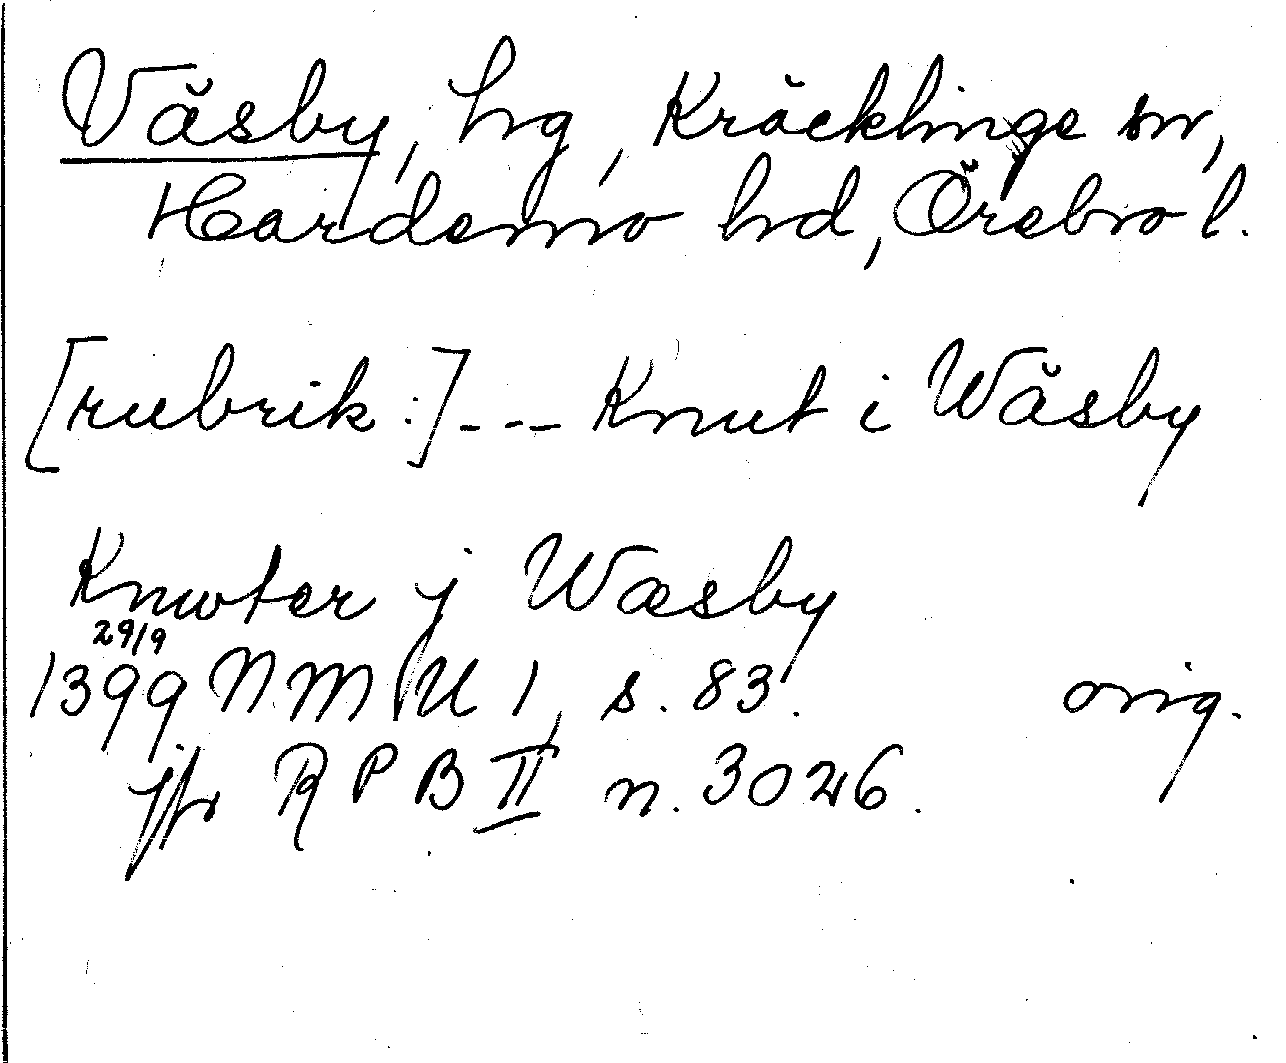 Väsby, hg, Kräcklinge sn,
Hardemo hd, Örebro l.
[rubrik:]--- Knut i Wäsby
Knwter j Wæsby
29/9
1399 NMU 1, s. 83. orig.
jfr RPB II n. 3026.